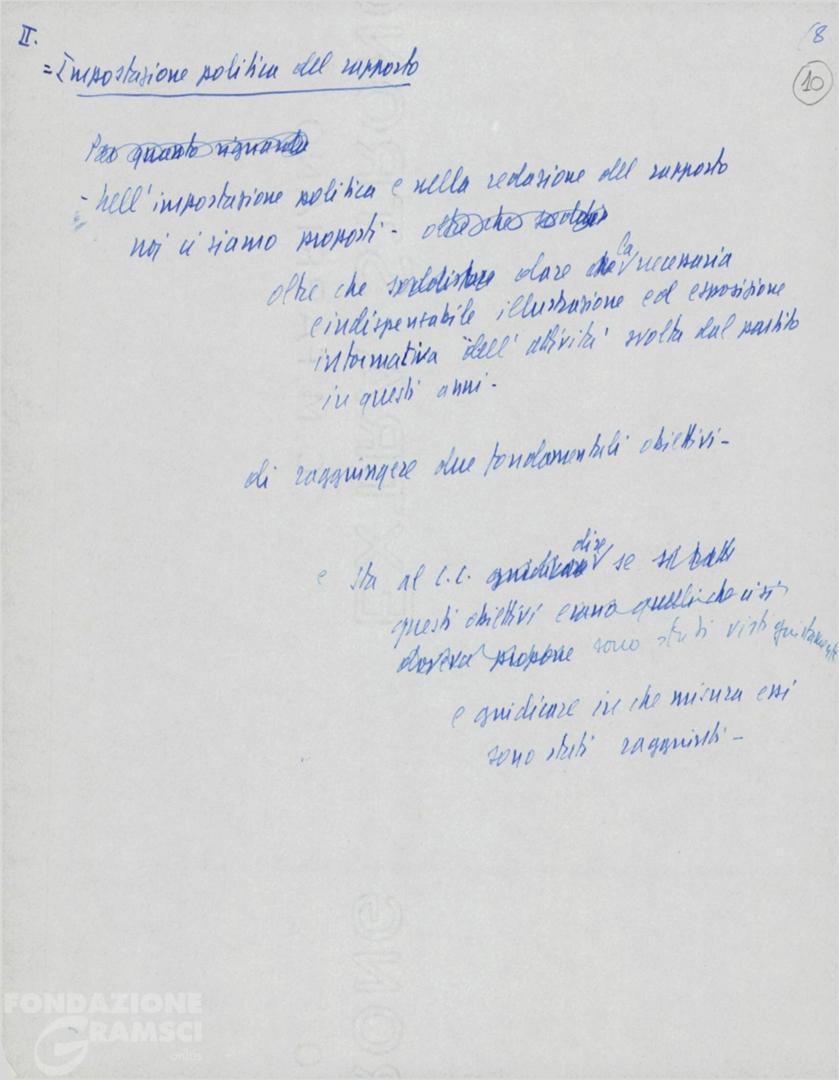 II.
8
10
= Impostazione politica del rapporto
Per quanto riguarda
- Nell'impostazione politica e nella redazione del rapporto
noi ci siamo proposti - oltre che soddisf
oltre che soddisfare dare che la necessaria
e indispensabile illustrazione ed esposizione
informativa dell'attività svolta dal partito
in questi anni -
di raggiungere due fondamentali obiettivi -
e sta al C.C. giudicare dire se
questi obiettivi erano quelli che ci si
doveva proporre sono stati visti giustamente
e giudicare in che misura essi
sono stati raggiunti -
FONDAZIONE
GRAMSCI
onlus